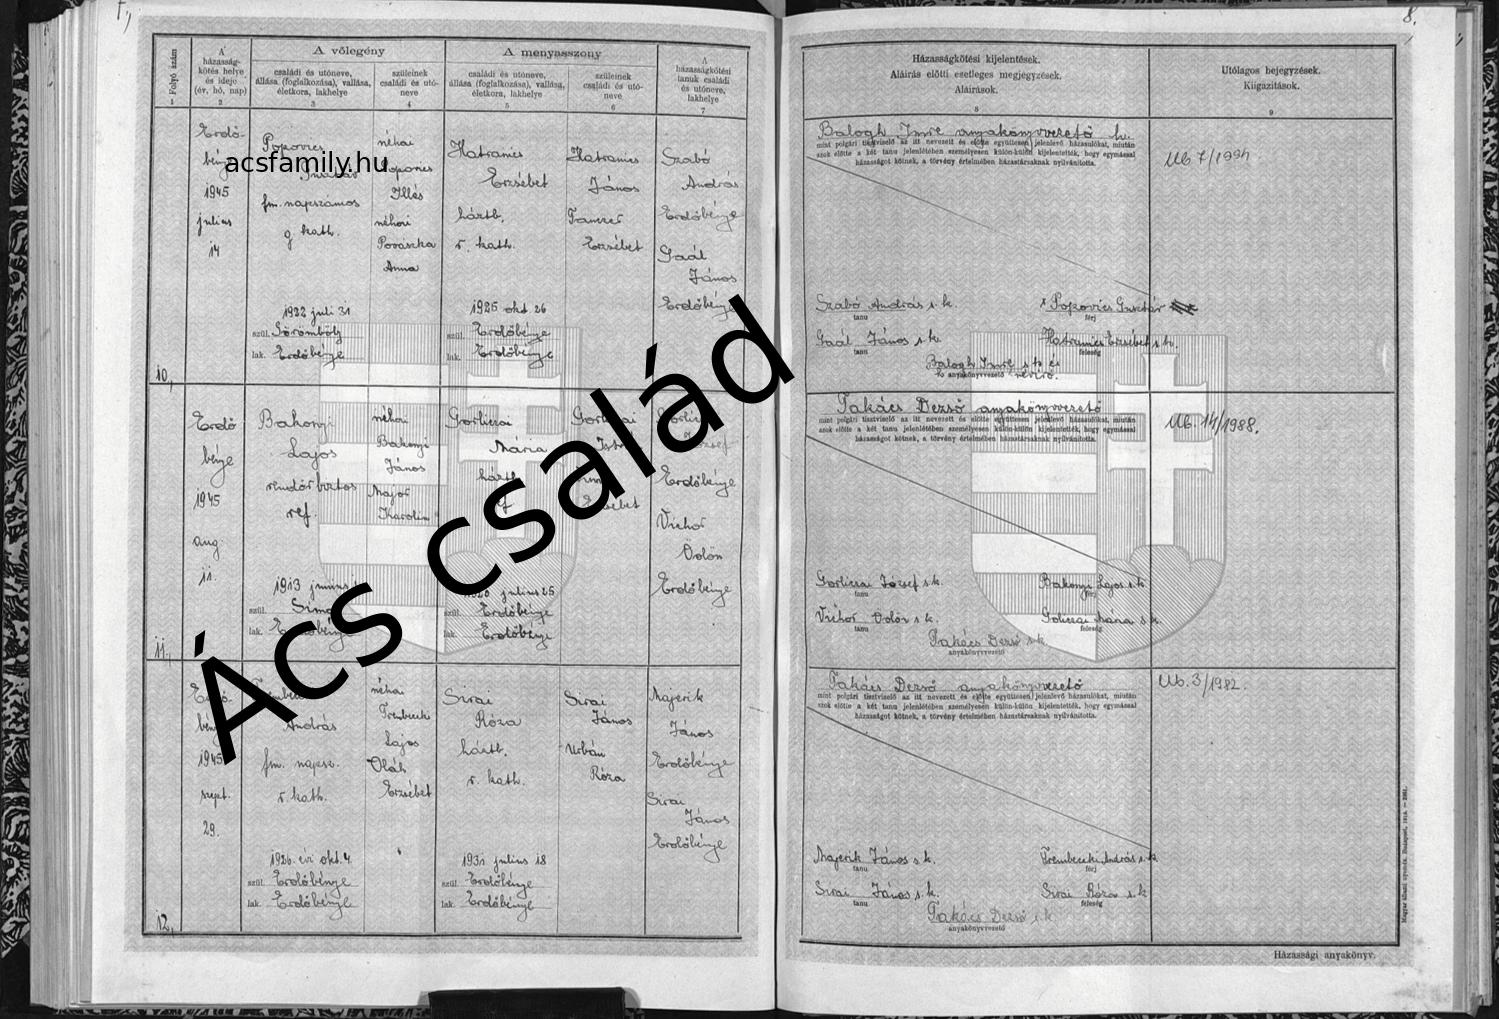 8.
A vőlegény
A menyasszony
Folyó szám
A házasság-
kötés helye
és ideje
(év, hó, nap)
családi és utóneve,
állása (foglalkozása), vallása,
életkora, lakhelye
szüleinek
családi és utó-
neve
családi és utóneve,
állása (foglalkozása), vallása,
életkora, lakhelye
szüleinek
családi és utó-
neve
A
házasságkötési
tanuk családi
és utóneve,
lakhelye
1
2
3
4
5
6
7
Házasságkötési kijelentések.
Aláirás előtti esetleges megjegyzések.
Aláirások.
8
Utólagos bejegyzések.
Kiigazitások.
9
10.
Erdő-
1945
julius
14
Popovics
fm. napszamos
g. kath.
1922 juli 31
szül. Sörömböly
lak. Erdőbénye
néhai
Popovics
Illés
néhai
Povaszka
Anna
Hatranics
Erzsébet
háztb.
r. kath.
1925 okt. 26
szül. Erdőbénye
lak. Erdőbénye
Hatranics
János
Erzsébet
Szabó
András
Erdőbénye
Gaál
János
Erdőbénye
Balogh Imre anyakönyvvezető h.
mint polgári tisztviselő az itt nevezett és előtte együttesen jelenlevő házasulókat, miután
azok előtte a két tanu jelenlétében személyesen külön-külön kijelentették, hogy egymással
házasságot kötnek, a törvény értelmében házastársaknak nyilvánitotta.
Szabó András s.k.
tanu
Popovics Gusztáv
férj
Gaál János s.k.
tanu
Hatranics Erzsébet s.k.
feleség
Balogh Imre s.k.
anyakönyvvezető
Mb 7/1994.
11.
Erdő
bénye
1945
aug.
11.
Bakonyi
Lajos
rendőrbiztos
ref.
szül.
lak.
néhai
Bakonyi
János
Major
Karolin
Gorliczai
Mária
julius 25
szül. Erdőbénye
lak. Erdőbénye
Gorliczai
Erdőbénye
Vichor
Ödön
Erdőbénye
Takács Dezső anyakönyvvezető
mint polgári tisztviselő az itt nevezett és előtte együttesen jelenlevő házasulókat, miután
azok előtte a két tanu jelenlétében személyesen külön-külön kijelentették, hogy egymással
házasságot kötnek, a törvény értelmében házastársaknak nyilvánitotta.
Gorliczai József s.k.
tanu
Bakonyi Lajos s.k.
férj
Vichor Ödön s.k.
tanu
Goliczai Mária s.k.
feleség
Takács Dezső s.k.
anyakönyvvezető
Mb. 14/1988.
12.
1945
szept.
29.
András
fm. napsz.
r. kath.
1920. évi okt. 4.
szül. Erdőbénye
lak. Erdőbénye
néhai
Trembeczki
Lajos
Oláh
Erzsébet
Sivai
Róza
háztb.
r. kath.
1931. julius 18
szül. Erdőbénye
lak. Erdőbénye
Sivai
János
Urbán
Róza
Majerik
János
Erdőbénye
Sivai
János
Erdőbénye
Takács Dezső anyakönyvvezető
mint polgári tisztviselő az itt nevezett és előtte együttesen jelenlevő házasulókat, miután
azok előtte a két tanu jelenlétében személyesen külön-külön kijelentették, hogy egymással
házasságot kötnek, a törvény értelmében házastársaknak nyilvánitotta.
Majerik János s.k.
tanu
Trembeczki András s.k.
férj
Sivai János s.k.
tanu
Sivai Róza s.k.
feleség
Takács Dezső s.k.
anyakönyvvezető
Mb. 3/1982.
Házassági anyakönyv.
acsfamily.hu
Ács család